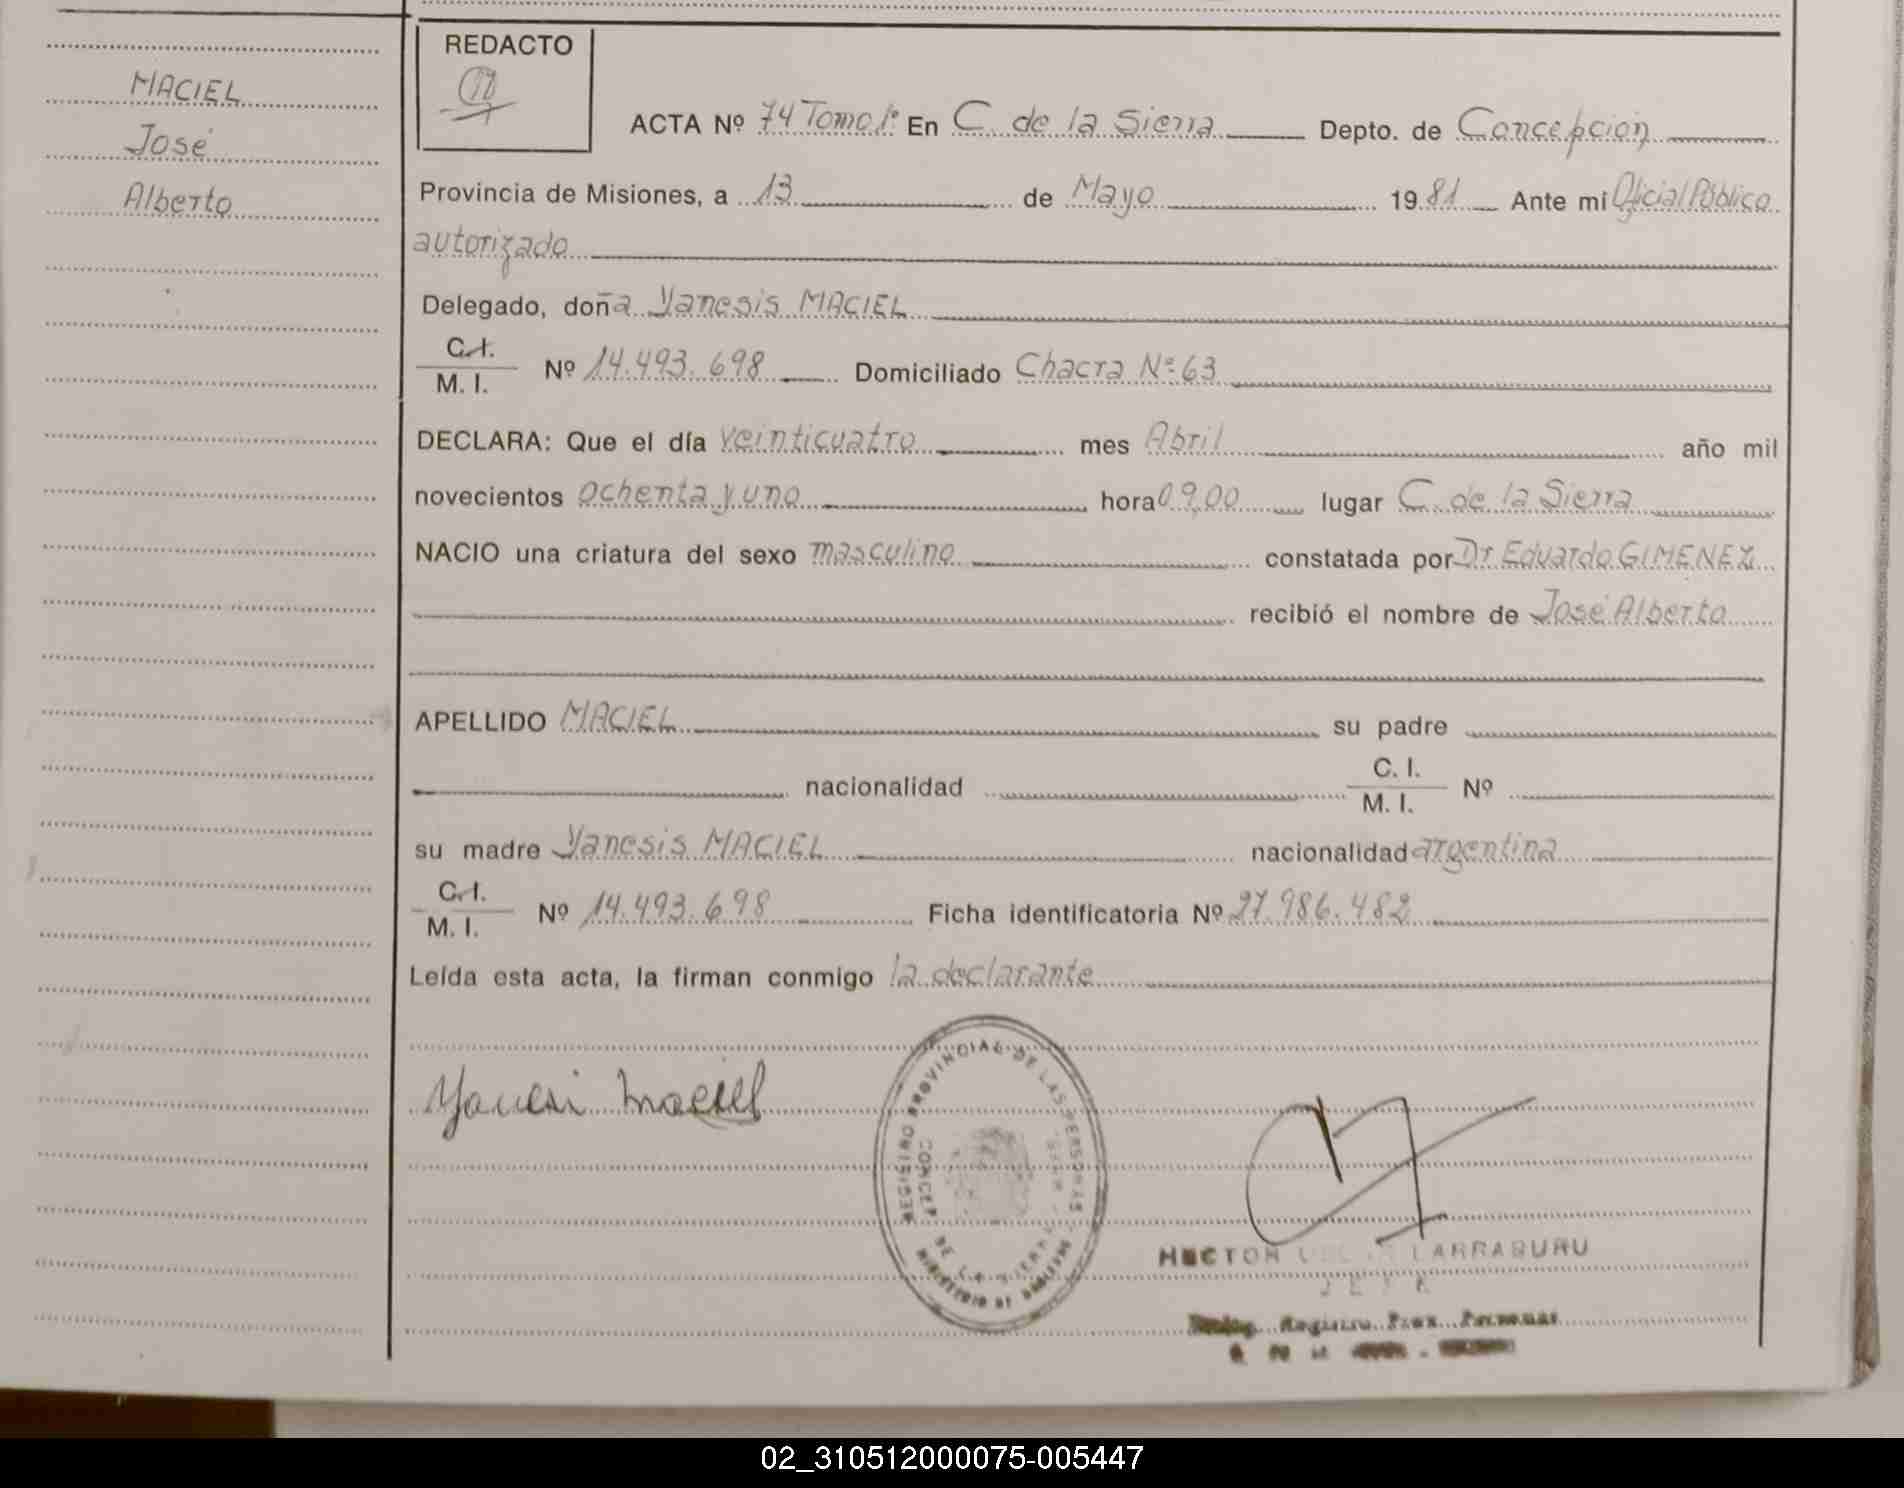 MACIEL
José
Alberto
REDACTO
ACTA Nº 74 Tomo 1º En C. de la Sierra Depto. de Concepción
Provincia de Misiones, a 13 de Mayo 1981 Ante mí Oficial Público
autorizado
Delegado, doña Yanesis MACIEL
C.I.
M. I. Nº 14.493.698 Domiciliado Chacra Nº 63
DECLARA: Que el día veinticuatro mes Abril año mil
novecientos ochenta y uno hora 09,00 lugar C. de la Sierra
NACIO una criatura del sexo masculino constatada por Dr Eduardo GIMENEZ
recibió el nombre de José Alberto
APELLIDO MACIEL su padre
nacionalidad C. I.
M. I. Nº
su madre Yanesis MACIEL nacionalidad argentina
C.I.
M. I. Nº 14.493.698 Ficha identificatoria Nº 27.986.482
Leída esta acta, la firman conmigo la declarante
Maciel
REGISTRO PROVINCIAL DE LAS PERSONAS
DE LA SIERRA
MINISTERIO DE GOBIERNO
HECTOR LARRABURU
JEFE
Registro Prov. Personas
02_310512000075-005447